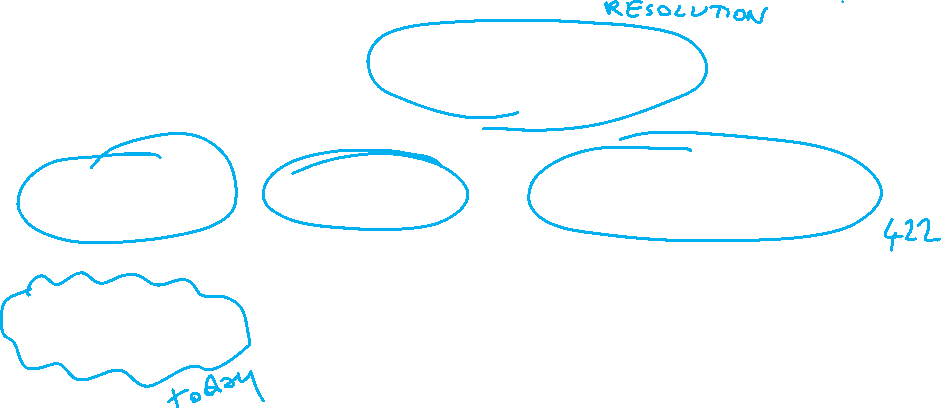 RESOLUTION
422
today